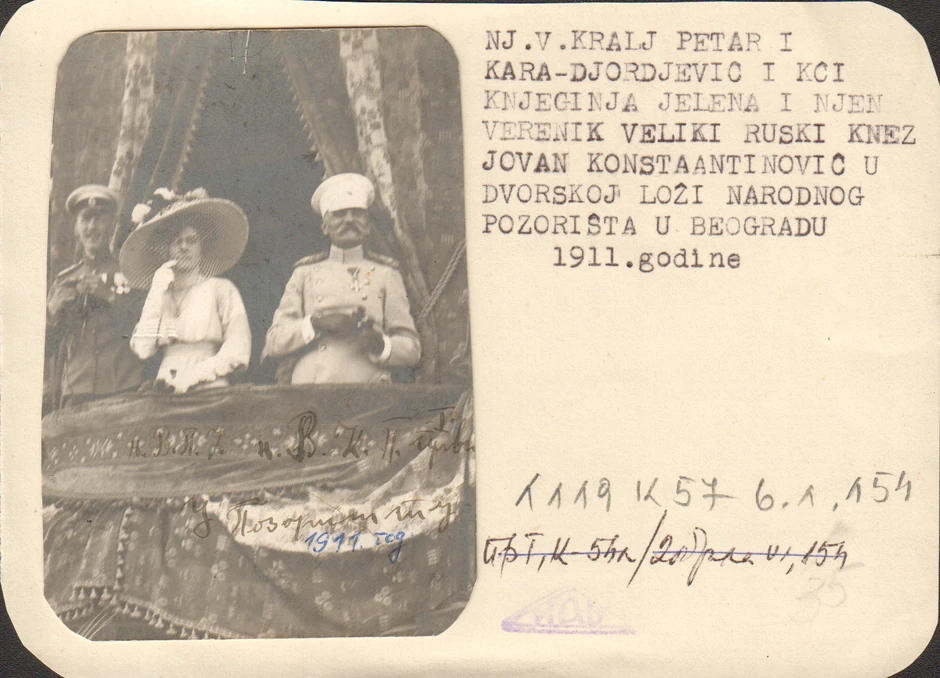 NJ.V.KRALJ PETAR I
KARA-DJORDJEVIĆ I KĆI
KNJEGINJA JELENA I NJEN
VERENIK VELIKI RUSKI KNEZ
JOVAN KONSTAANTINOVIĆ U
DVORSKOJ LOŽI NARODNOG
POZORIŠTA U BEOGRADU
1911.godine
н. В. К. П.
у Позоришту
1911. год
1119 K57 6.1.154
154
35